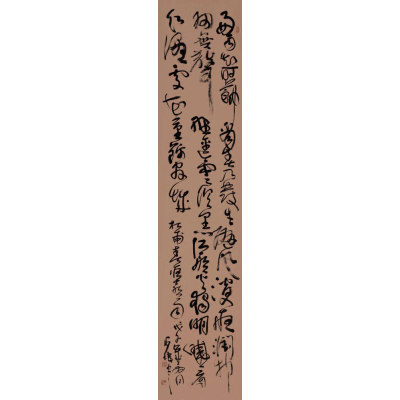 好雨知時節當春乃發生隨風潛入夜潤物
細無聲野徑雲俱黑江船火獨明曉看
紅濕處花重錦官城杜甫春夜喜雨